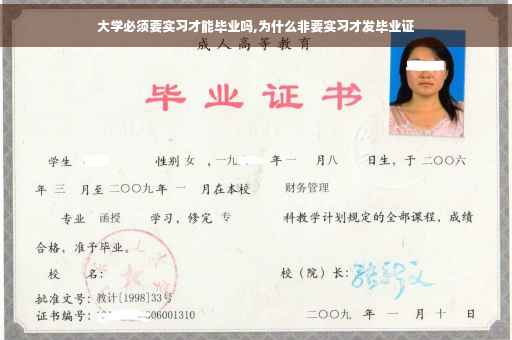 大学必须要实习才能毕业吗,为什么非要实习才发毕业证
成人高等教育
毕业证书
学生 性别 女 ，一九 年 一 月八 日生，于 二〇〇六
年 三 月至 二〇〇九年 一 月在本校 财务管理
专业 函授 学习，修完 专 科教学计划规定的全部课程，成绩
合格，准予毕业。
校 名： 校（院）长：
批准文号：教计[1998]33号
证书编号： 06001310 二〇〇九 年 一 月 十 日